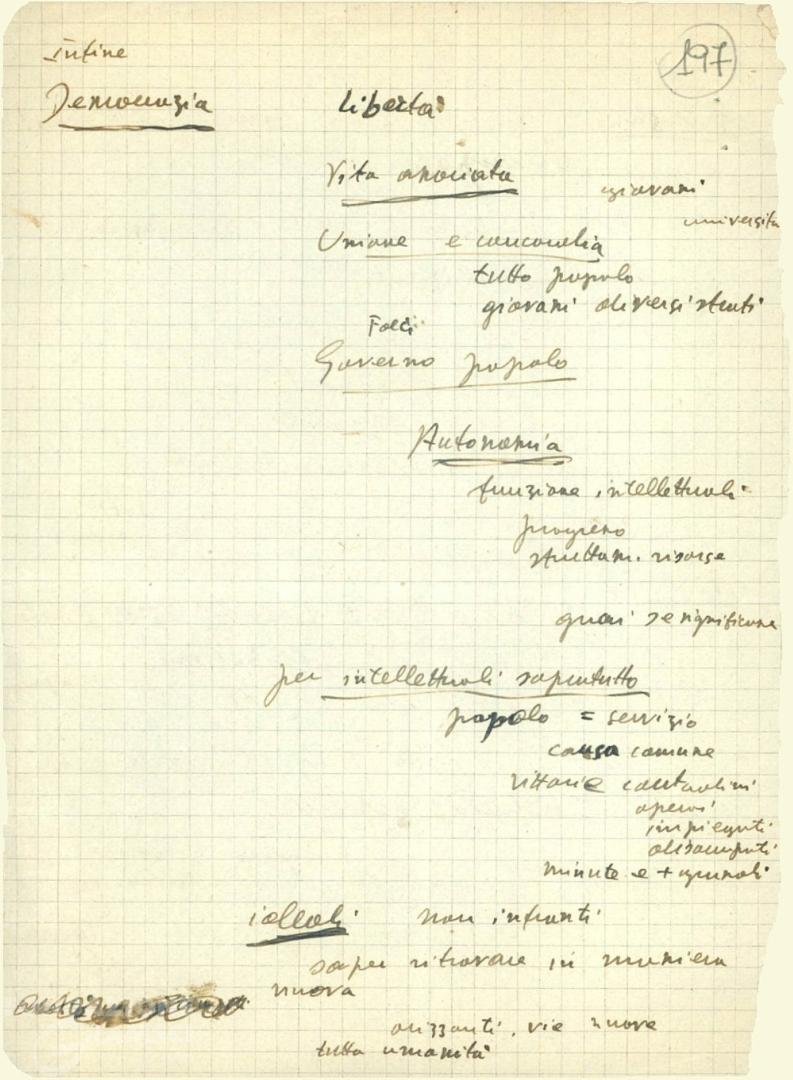 infine
197
Democrazia libertà
Vita associata giovani
università
Unione e concordia
tutto popolo
giovani diversi strati
Forze
Governo popolo
Autonomia
funzione intellettuali
progresso
sfruttam. risorse
guai se significasse
per intellettuali soprattutto
popolo = servizio
causa comune
vittorie contadini
operai
impiegati
disoccupati
minute e + grandi
ideali non infranti
saper ritrovare in maniera
nuova
orizzonti, vie nuove
tutta umanità